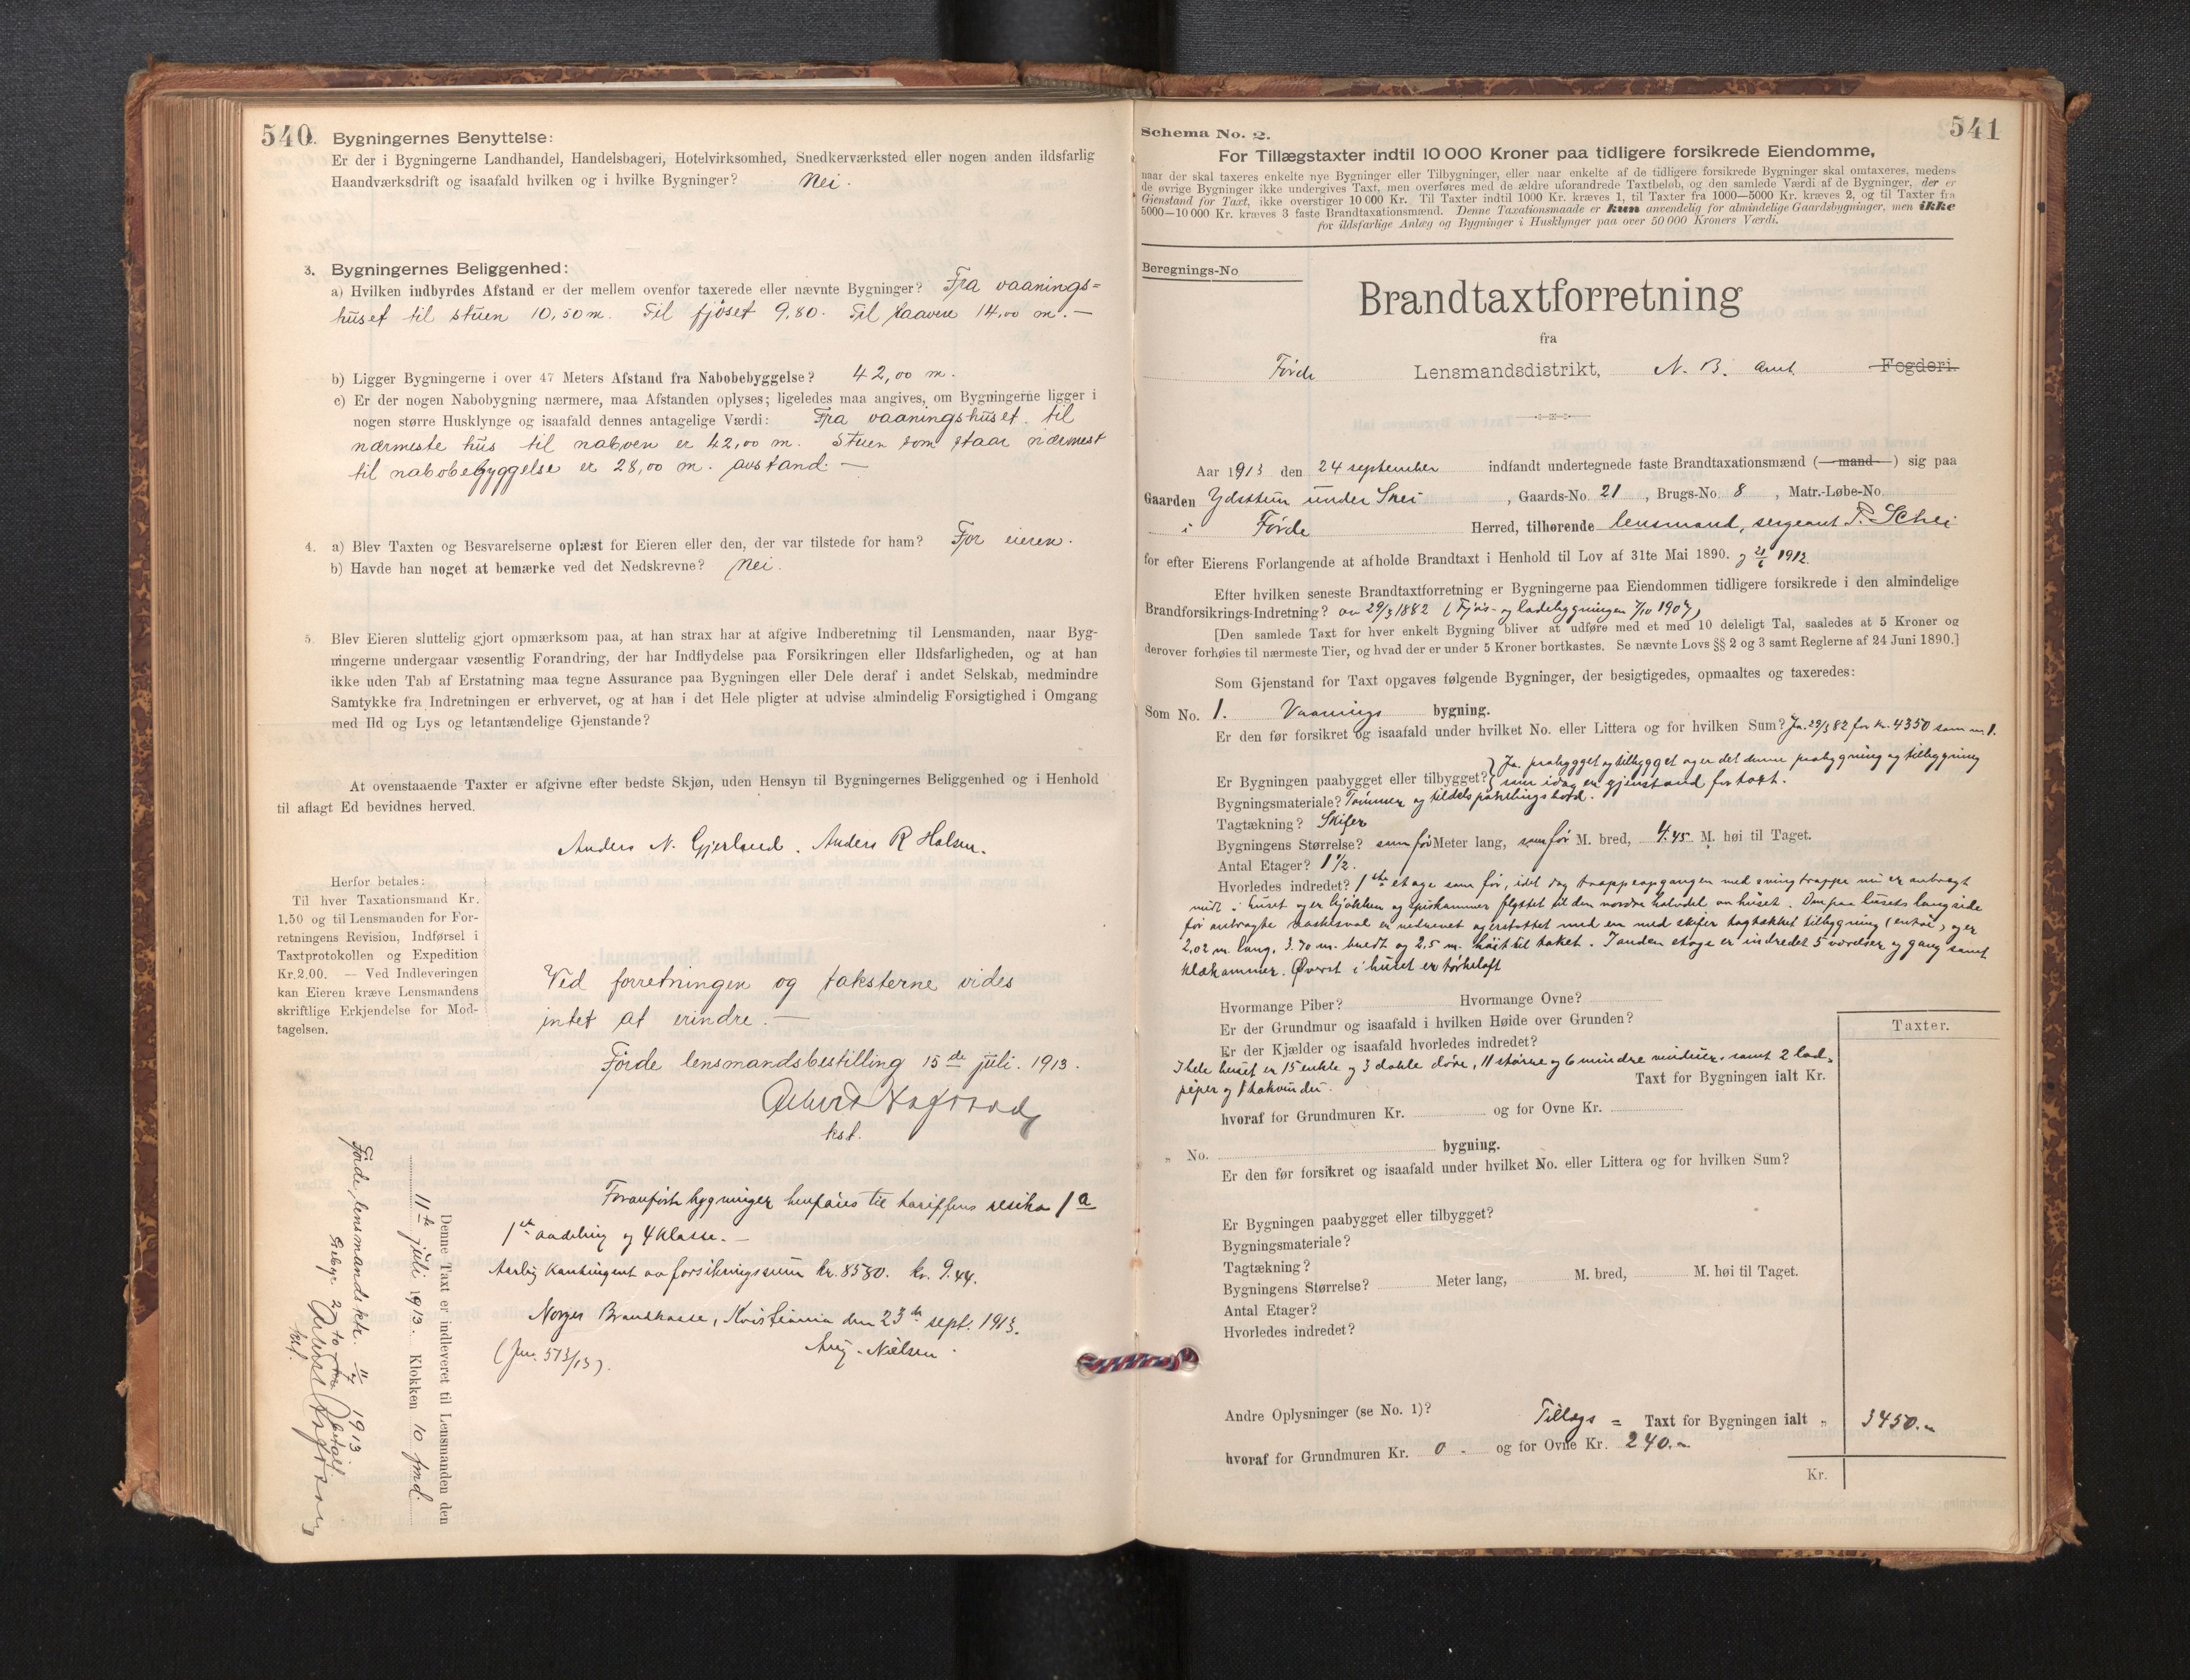 540
2. Bygningernes Benyttelse:
Er der i Bygningerne Landhandel, Handelsbageri, Hotelvirksomhed, Snedkerværksted eller nogen anden ildsfarlig
Haandværksdrift og isaafald hvilken og i hvilke Bygninger? Nei.
3. Bygningernes Beliggenhed:
a) Hvilken indbyrdes Afstand er der mellem ovenfor taxerede eller nævnte Bygninger? Fra vaanings=
huset til stuen 10,50 m. Til fjøset 9,80. Til 14,00 m. —
b) Ligger Bygningerne i over 47 Meters Afstand fra Nabobebyggelse? 42,00 m.
c) Er der nogen Nabobygning nærmere, maa Afstanden oplyses; ligeledes maa angives, om Bygningerne ligger i
nogen større Husklynge og isaafald dennes antagelige Værdi: Fra vaaningshuset til
nærmeste hus til naboen er 42,00 m. Stuen som staar nærmest
til nabobebyggelse er 28,00 m. avstand. —
4. a) Blev Taxten og Besvarelserne oplæst for Eieren eller den, der var tilstede for ham? For eieren.
b) Havde han noget at bemærke ved det Nedskrevne? Nei.
5. Blev Eieren sluttelig gjort opmærksom paa, at han strax har at afgive Indberetning til Lensmanden, naar Byg-
ningerne undergaar væsentlig Forandring, der har Indflydelse paa Forsikringen eller Ildsfarligheden, og at han
ikke uden Tab af Erstatning maa tegne Assurance paa Bygningen eller Dele deraf i andet Selskab, medmindre
Samtykke fra Indretningen er erhvervet, og at han i det Hele pligter at udvise almindelig Forsigtighed i Omgang
med Ild og Lys og letantændelige Gjenstande?
At ovenstaaende Taxter er afgivne efter bedste Skjøn, uden Hensyn til Bygningernes Beliggenhed og i Henhold
til aflagt Ed bevidnes herved.
Anders N. Gjerland. Anders R Halsen.
Herfor betales:
Til hver Taxationsmand Kr.
1.50 og til Lensmanden for For-
retningens Revision, Indførsel i
Taxtprotokollen og Expedition
Kr. 2.00. — Ved Indleveringen
kan Eieren kræve Lensmandens
skriftlige Erkjendelse for Mod-
tagelsen.
Ved forretningen og taksterne vides
intet at erindre. —
Førde lensmandsbestilling 15de juli. 1913.
kst.
Foranførte bygninger henføres til tariffens resiko 1 a
1ste avdeling og 4 klasse. —
Aarlig kontingent av forsikringssum kr. 8580. kr. 9.44.
Norges Brandkasse, Kristiania den 23de sept. 1913.
(Jnr. 573/13). Aug. Nielsen.
Denne Taxt er indleveret til Lensmanden den
11te juli 1913. Klokken 10 fmd.
Førde lensmandsktr. 11/7 1913
Gebyr 2 to betalt
kst.
541
Schema No. 2.
For Tillægstaxter indtil 10 000 Kroner paa tidligere forsikrede Eiendomme,
naar der skal taxeres enkelte nye Bygninger eller Tilbygninger, eller naar enkelte af de tidligere forsikrede Bygninger skal omtaxeres, medens
de øvrige Bygninger ikke undergives Taxt, men overføres med de ældre uforandrede Taxtbeløb, og den samlede Værdi af de Bygninger, der er
Gjenstand for Taxt, ikke overstiger 10 000 Kr. Til Taxter indtil 1000 Kr. kræves 1, til Taxter fra 1000—5000 Kr. kræves 2, og til Taxter fra
5000—10 000 Kr. kræves 3 faste Brandtaxationsmænd. Denne Taxationsmaade er kun anvendelig for almindelige Gaardsbygninger, men ikke
for ildsfarlige Anlæg og Bygninger i Husklynger paa over 50 000 Kroners Værdi.
Beregnings-No
Brandtaxtforretning
fra
Førde Lensmandsdistrikt, N. B. Amt Fogderi.
Aar 1913 den 24 september indfandt undertegnede faste Brandtaxationsmænd (—mand—) sig paa
Gaarden Ydsteun under Skei, Gaards-No. 21, Brugs-No. 8, Matr.-Løbe-No.
i Førde Herred, tilhørende lensmand, sergeant P. Schei
for efter Eierens Forlangende at afholde Brandtaxt i Henhold til Lov af 31te Mai 1890. og 21/6 1912.
Efter hvilken seneste Brandtaxtforretning er Bygningerne paa Eiendommen tidligere forsikrede i den almindelige
Brandforsikrings-Indretning? av 29/3 1882 (Fjøs- og ladebygningen 7/10 1907)
[Den samlede Taxt for hver enkelt Bygning bliver at udføre med et med 10 deleligt Tal, saaledes at 5 Kroner og
derover forhøies til nærmeste Tier, og hvad der er under 5 Kroner bortkastes. Se nævnte Lovs §§ 2 og 3 samt Reglerne af 24 Juni 1890.]
Som Gjenstand for Taxt opgaves følgende Bygninger, der besigtigedes, opmaaltes og taxeredes:
Som No. 1. Vaanings bygning.
Er den før forsikret og isaafald under hvilket No. eller Littera og for hvilken Sum? Ja. 29/3 82 for kr. 4350 som nr 1.
Er Bygningen paabygget eller tilbygget? Ja. paabygget og tilbygget og er det denne paabygning og tilbygning
som idag er gjenstand for takst.
Bygningsmateriale? Tømmer og tildels panelingsbord.
Tagtækning? Skifer
Bygningens Størrelse? som før Meter lang, som før M. bred, 4.45 M. høi til Taget.
Antal Etager? 1 1/2.
Hvorledes indredet? 1ste etage som før, idet dog trappeopgangen med svingtrappe nu er anbragt
midt i huset og er kjøkken og spiskammer flyttet til den nordre halvdel av huset. Den paa husets langside
før anbragte er nedrevet og erstattet med en med skifer tagtækket tilbygning (entré), og er
2,02 m. lang, 3.70 m. bredt og 2,5 m. høit til taket. I anden etage er indredet 5 værelser og gang samt
klækammer. Øverst i huset er tørkeloft
Hvormange Piber? Hvormange Ovne?
Er der Grundmur og isaafald i hvilken Høide over Grunden?
Er der Kjælder og isaafald hvorledes indredet?
I hele huset er 15 enkle og 3 doble døre, 11 større og 6 mindre vinduer, samt 2 lod-
piper og 1 takvindu.
Taxter.
Taxt for Bygningen ialt Kr.
hvoraf for Grundmuren Kr. og for Ovne Kr.
„ No. bygning.
Er den før forsikret og isaafald under hvilket No. eller Littera og for hvilken Sum?
Er Bygningen paabygget eller tilbygget?
Bygningsmateriale?
Tagtækning?
Bygningens Størrelse? Meter lang, M. bred, M. høi til Taget.
Antal Etager?
Hvorledes indredet?
Andre Oplysninger (se No. 1)? Tillægs = Taxt for Bygningen ialt „ 3450.-
hvoraf for Grundmuren Kr. 0 - og for Ovne Kr. 240.-
Kr.